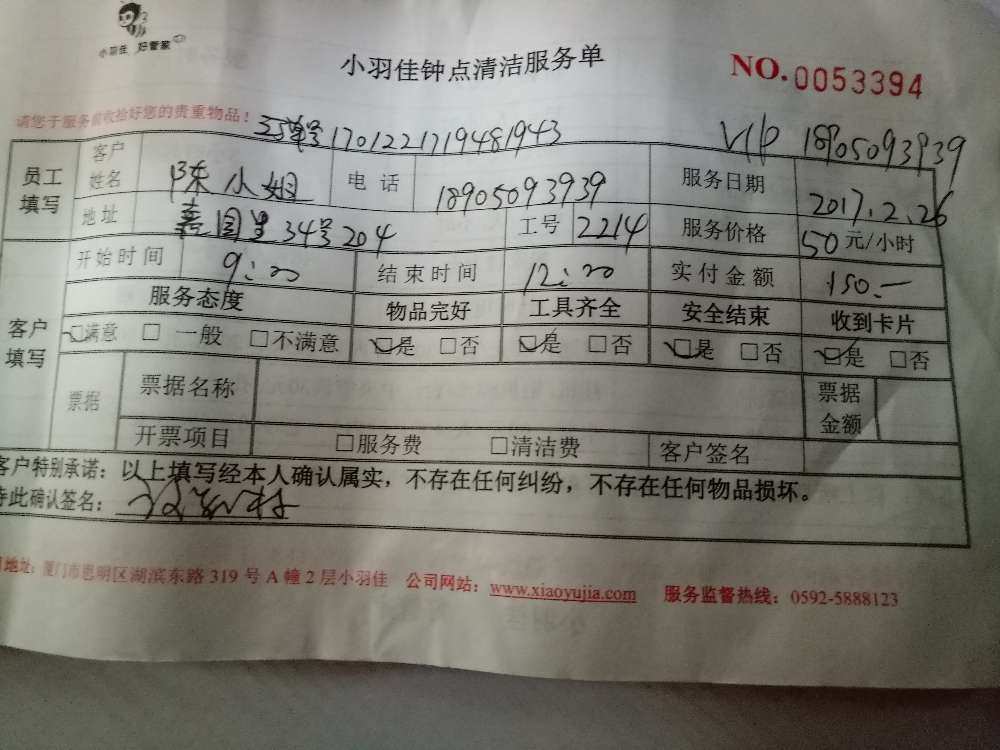 小羽佳 好管家
小羽佳钟点清洁服务单
NO.0053394
请您于服务前收拾好您的贵重物品！
订单号1701221719481943
VIP 18905093939
员工填写 客户姓名 陈小姐 电话 18905093939 服务日期 2017.2.26
地址 园里34号204 工号 2214 服务价格 50元/小时
开始时间 9:00 结束时间 12:00 实付金额 150.—
客户填写 服务态度 物品完好 工具齐全 安全结束 收到卡片
☑满意 □ 一般 □不满意 ☑是 □否 ☑是 □否 ☑是 □否 ☑是 □否
票据 票据名称 票据金额
开票项目 □服务费 □清洁费 客户签名
客户特别承诺：以上填写经本人确认属实，不存在任何纠纷，不存在任何物品损坏。
特此确认签名：
司地址：厦门市思明区湖滨东路 319 号 A 幢 2 层小羽佳 公司网站：www.xiaoyujia.com 服务监督热线：0592-5888123